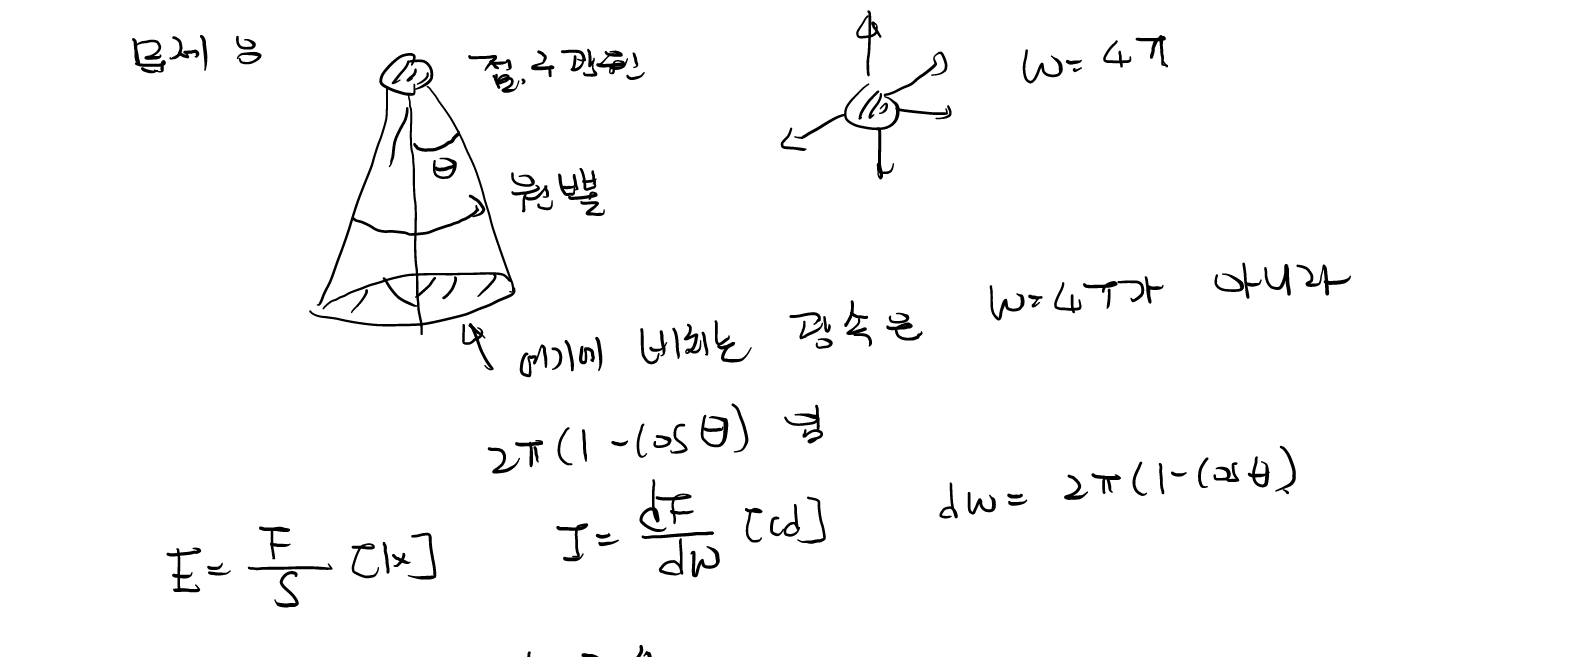 문제 응
점. 구 광원
W = 4π
θ
원뿔
여기에 비치는 광속은 W = 4π가 아니라
2π(1-cosθ) 킴
E = F/S [lx] I = dF/dW [cd] dW = 2π(1-cosθ)